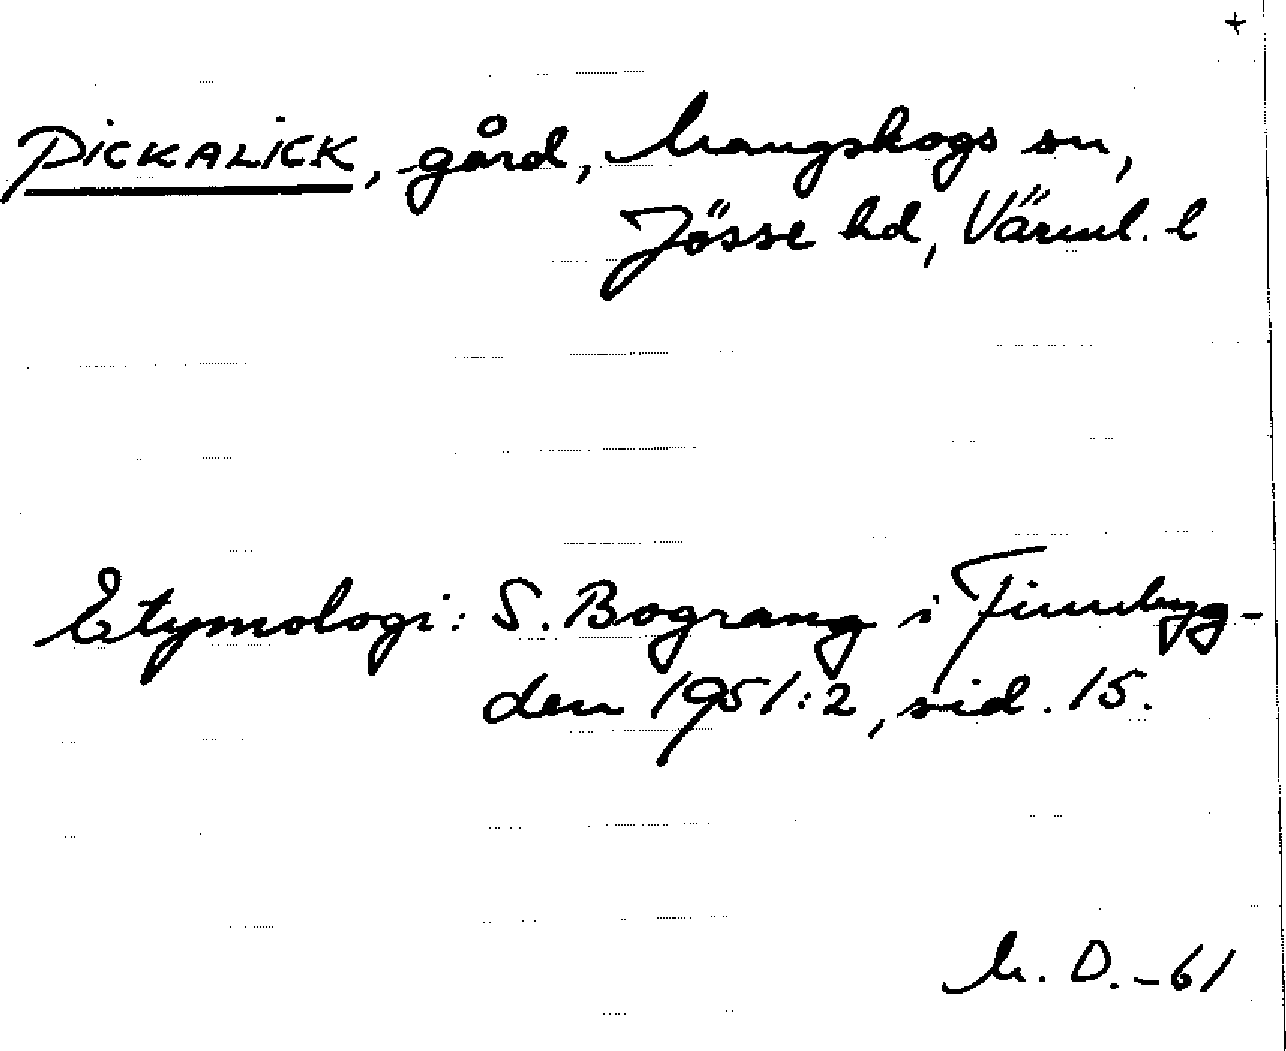 +
PICKALICK, gård, Mangskogs sn,
Jösse hd, Värml. l
Etymologi: S. Bograng i Finnbyg-
den 1951:2, sid. 15.
M. D. -61